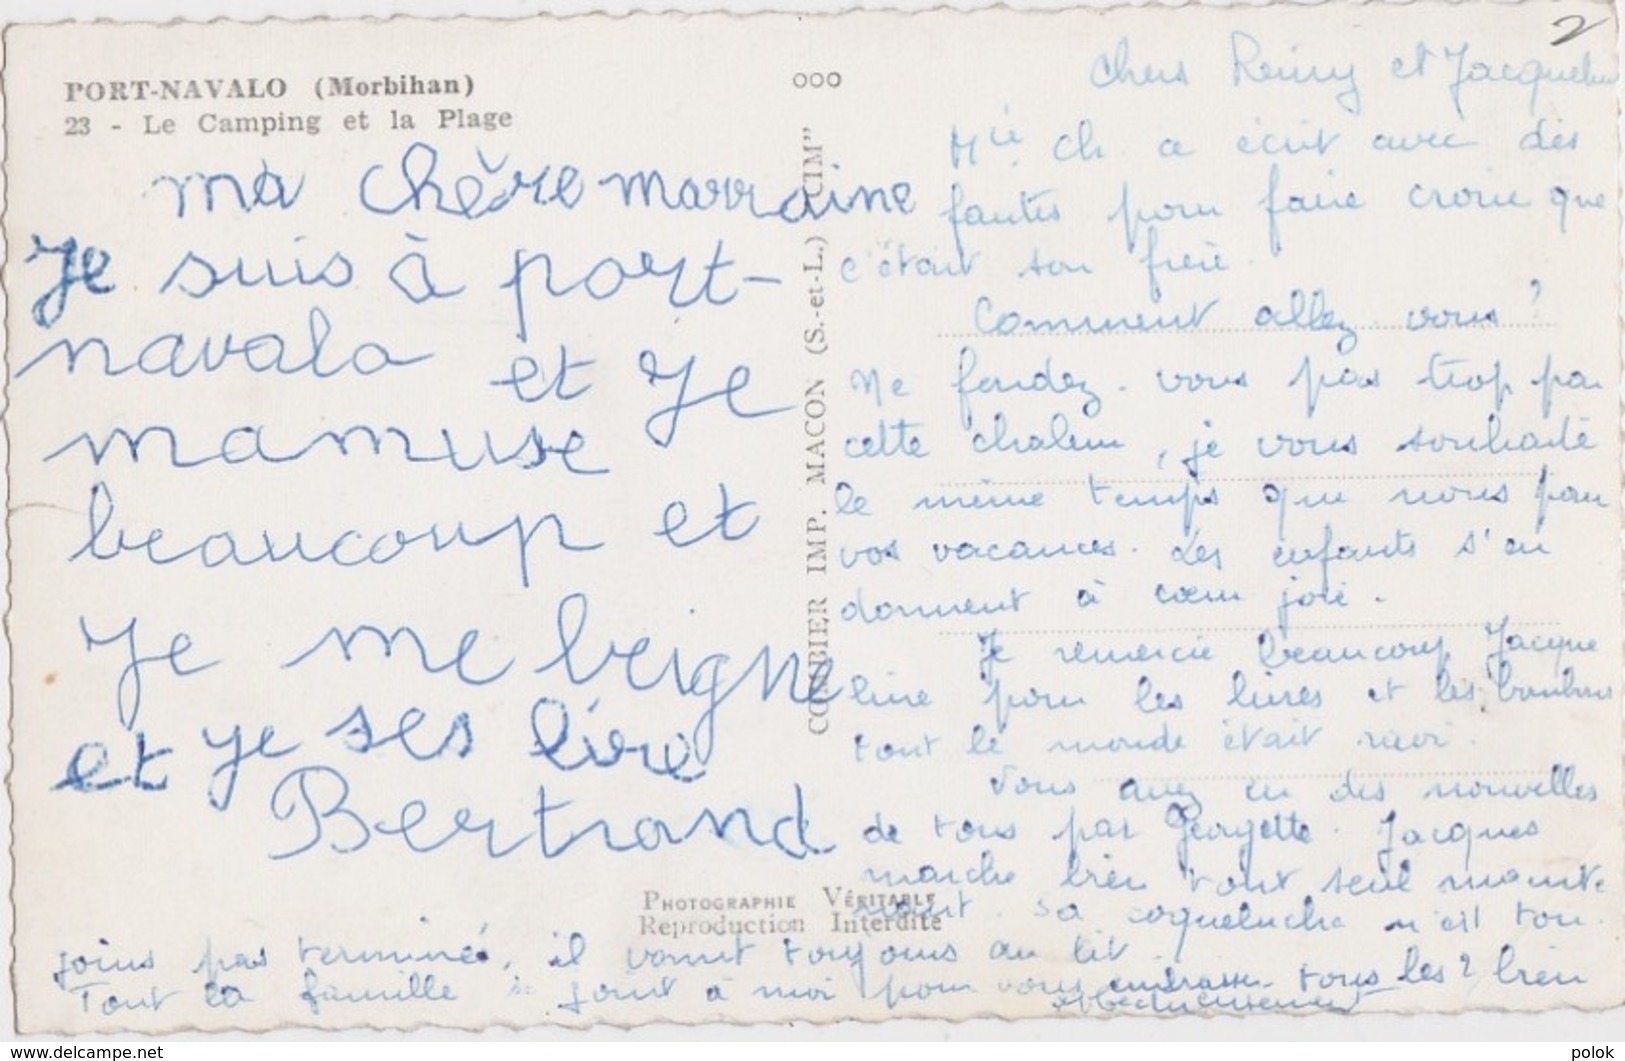 PORT-NAVALO (Morbihan)
23 - Le Camping et la Plage
ma chère marraine
Je suis à port-
navalo et Je
mamuse
beaucoup et
Je me beigne
et je ses lire
Bertrand
COMBIER IMP. MACON (S.-et-L.) "CIM"
PHOTOGRAPHIE VÉRITABLE
Reproduction Interdite
2
Chers Rémy et Jacqueline
Mie Ch. a écrit avec des
fautes pour faire croire que
c'était son frère.
Comment allez vous ?
Ne fondez-vous pas trop par
cette chaleur, je vous souhaite
le même temps que nous pour
vos vacances. Les enfants s'en
donnent à cœur joie.
Je remercie beaucoup Jacque
line pour les livres et les bonbons
tout le monde était ravi.
Vous avez eu des nouvelles
de tous par Georgette. Jacques
marche bien tout seul mainte
nant. Sa coqueluche n'est tou
jours pas terminée, il vomit toujours au lit.
Tout la famille se joint à moi pour vous embrasser tous les 2 bien
affectueusement
polok
www.delcampe.net